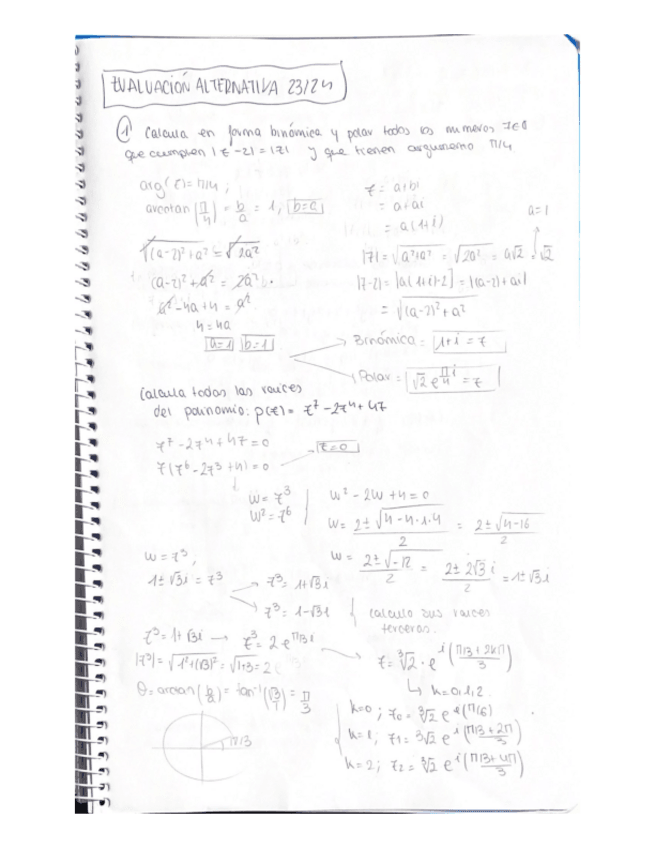 EVALUACIÓN ALTERNATIVA 23/24
① Calcula en forma binómica y polar todos los números z∈
que cumplen |z-2|=|z| y que tienen argumento π/4
arg(z)=π/4;
arcotan(π/4) = b/a = 1; b=a
√(a-2)²+a² = √2a²
(a-2)²+a² = 2a²
a²-4a+4 = a²
4=4a
a=1 b=1
z = a+bi
= a+ai
= a(1+i)
a=1
|z| = √a²+a² = √2a² = a√2 = √2
|z-2| = |a(1+i)-2| = |(a-2)+ai|
= √(a-2)²+a²
Binómica = 1+i = z
Polar = √2 e^(π/4 i) = z
Calcula todas las raíces
del polinomio: p(z) = z⁷-2z⁴+4z
z⁷-2z⁴+4z=0
z(z⁶-2z³+4)=0
z=0
w=z³
w²=z⁶
w²-2w+4=0
w= 2±√4-4·1·4 / 2 = 2±√4-16 / 2
w= 2±√-12 / 2 = 2±2√3 i / 2 = 1±√3i
w=z³;
1±√3i = z³
z³=1+√3i
z³=1-√3i
calculo sus raíces
terceras.
z³=1+√3i → z³=2e^(π/3 i)
|z³| = √1²+(√3)² = √1+3 = 2
θ=arctan(b/a) = tan⁻¹(√3/1) = π/3
π/3
z=³√2·e^i((π/3+2kπ)/3)
↳ k=0,1,2.
k=0; z₀=³√2 e^i(π/6)
k=1; z₁=³√2 e^i((π/3+2π)/3)
k=2; z₂=³√2 e^i((π/3+4π)/3)